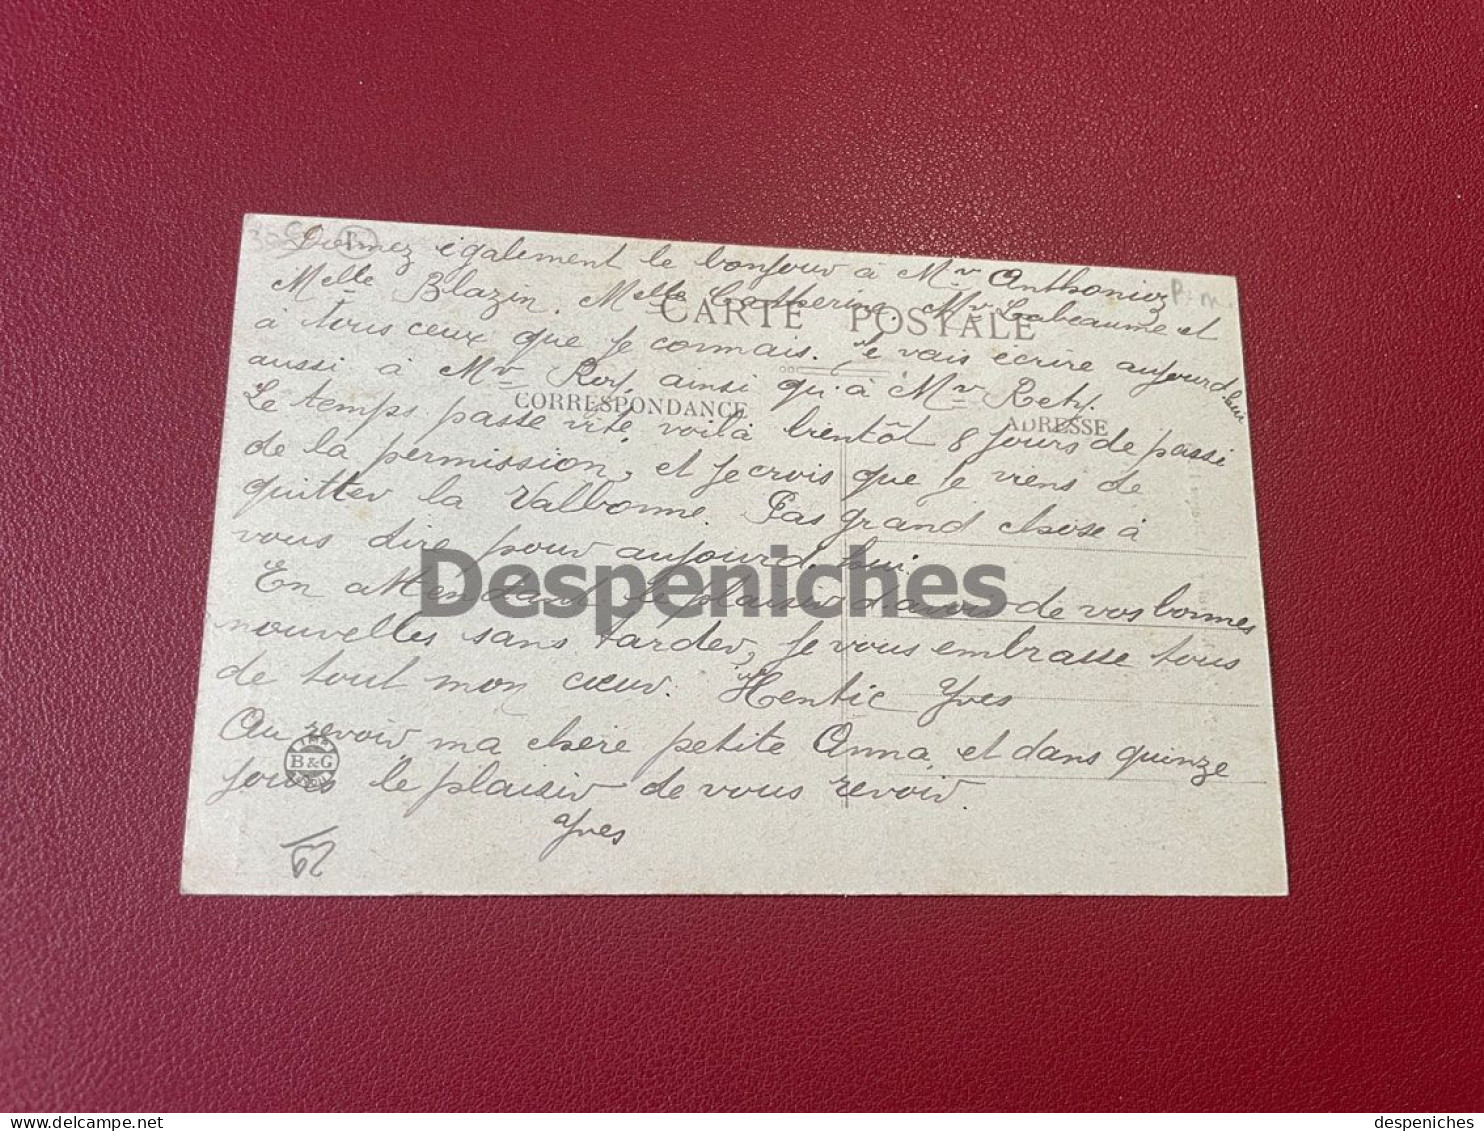 Donnez également le bonjour à Mr Anthonioz
Melle Blazin. Melle Catherine. Mr Labeaume et
CARTE POSTALE
à tous ceux que je connais. Je vais écrire aujourd'hui
aussi à Mr Roy, ainsi qu'à Mr
CORRESPONDANCE
ADRESSE
Le temps passe vite, voilà bientôt 8 jours de passé
de la permission, et je crois que je viens de
quitter la Valbonne. Pas grand chose à
vous dire pour aujourd'hui.
En attendant le plaisir d'avoir de vos bonnes
Despeniches
nouvelles sans tarder, je vous embrasse tous
de tout mon cœur. Hentic Yves
Au revoir ma chère petite Anna, et dans quinze
B&G
jours le plaisir de vous revoir.
Yves
delcampe.net
despeniches